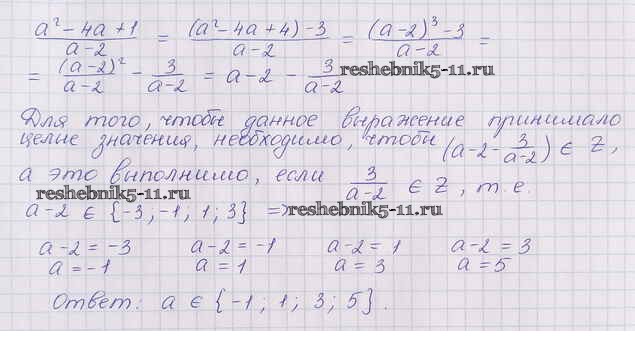 (a² − 4a + 1)/(a − 2) = ((a² − 4a + 4) − 3)/(a − 2) = ((a − 2)³ − 3)/(a − 2) =
= (a − 2)²/(a − 2) − 3/(a − 2) = a − 2 − 3/(a − 2) reshebnik5-11.ru
Для того, чтобы данное выражение принимало
целые значения, необходимо, чтобы (a − 2 − 3/(a − 2)) ∈ Z,
а это выполнимо, если 3/(a − 2) ∈ Z, т.е.
reshebnik5-11.ru
a − 2 ∈ {−3, −1, 1; 3} => reshebnik5-11.ru
a − 2 = −3 a − 2 = −1 a − 2 = 1 a − 2 = 3
a = −1 a = 1 a = 3 a = 5
Ответ: a ∈ {−1; 1; 3; 5}.